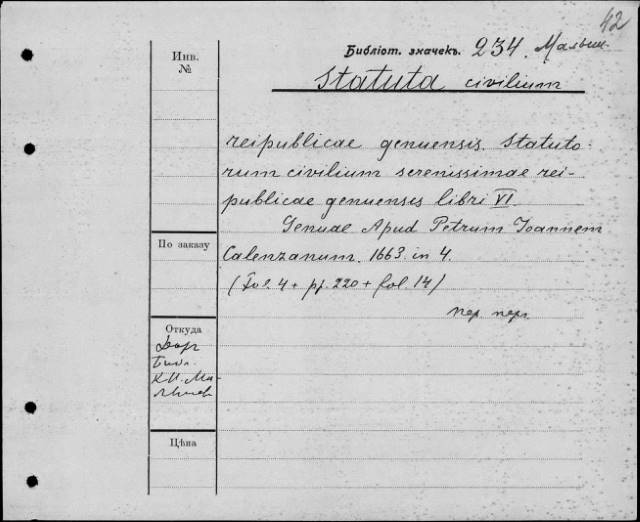 42
Библіот. значекъ. 234. Малыш.
Инв.
№
Statuta civilium
reipublicae genuensis. Statuto-
rum civilium serenissimae rei-
publicae genuensis libri VI.
Genuae Apud Petrum Ioannem
По заказу
Calenzanum. 1663. in 4.
(Fol. 4 + pp. 220 + fol. 14)
пер. перг.
Откуда
Дар
Библ.
К.И. Ма-
лышев
Цѣна